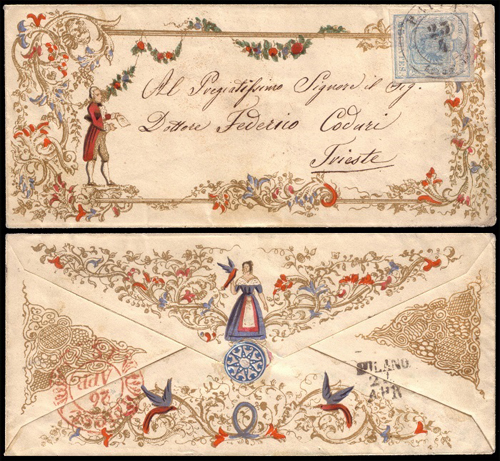 23
4
Al Pregiatissimo Signore il Sig.
Dottore Federico Coduri
Trieste
MILANO
APR
26
APR